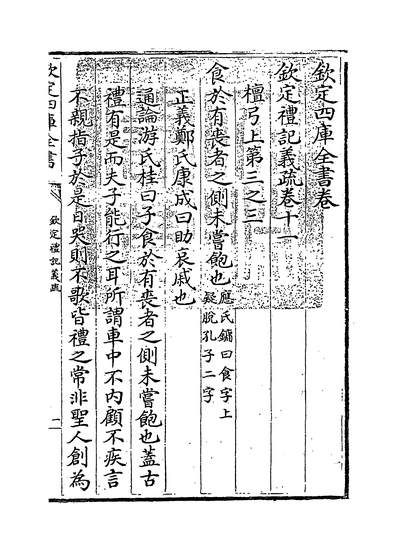 欽定四庫全書卷
欽定禮記義疏卷十一
檀弓上第三之三
食於有喪者之側未嘗飽也應氏鏞曰食字上
疑脫孔子二字
正義鄭氏康成曰助哀戚也
通論游氏桂曰子食於有喪者之側未嘗飽也蓋古
禮有是而夫子能行之耳所謂車中不內顧不疾言
不親指子於是日哭則不歌皆禮之常非聖人創為
欽定四庫全書
欽定禮記義疏